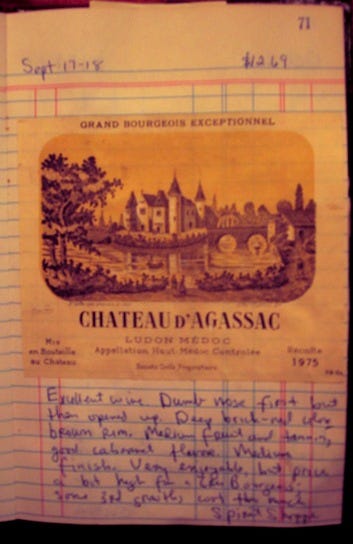 71
Sept 17-18 $12.69
GRAND BOURGEOIS EXCEPTIONNEL
CHATEAU D'AGASSAC
LUDON MÉDOC
Appellation Haut-Médoc Controlée
Mis
en Bouteille
au Chateau
Récolte
1975
Excellent wine. Dumb nose first hour
then opened up. Deep brick-red color
brown rim. Medium fruit and tannin,
good cabernet flavor. Medium
finish. Very enjoyable, but price
a bit high for a "Cru Bourgeois".
some 3rd growths cost this much
Spirit Shoppe